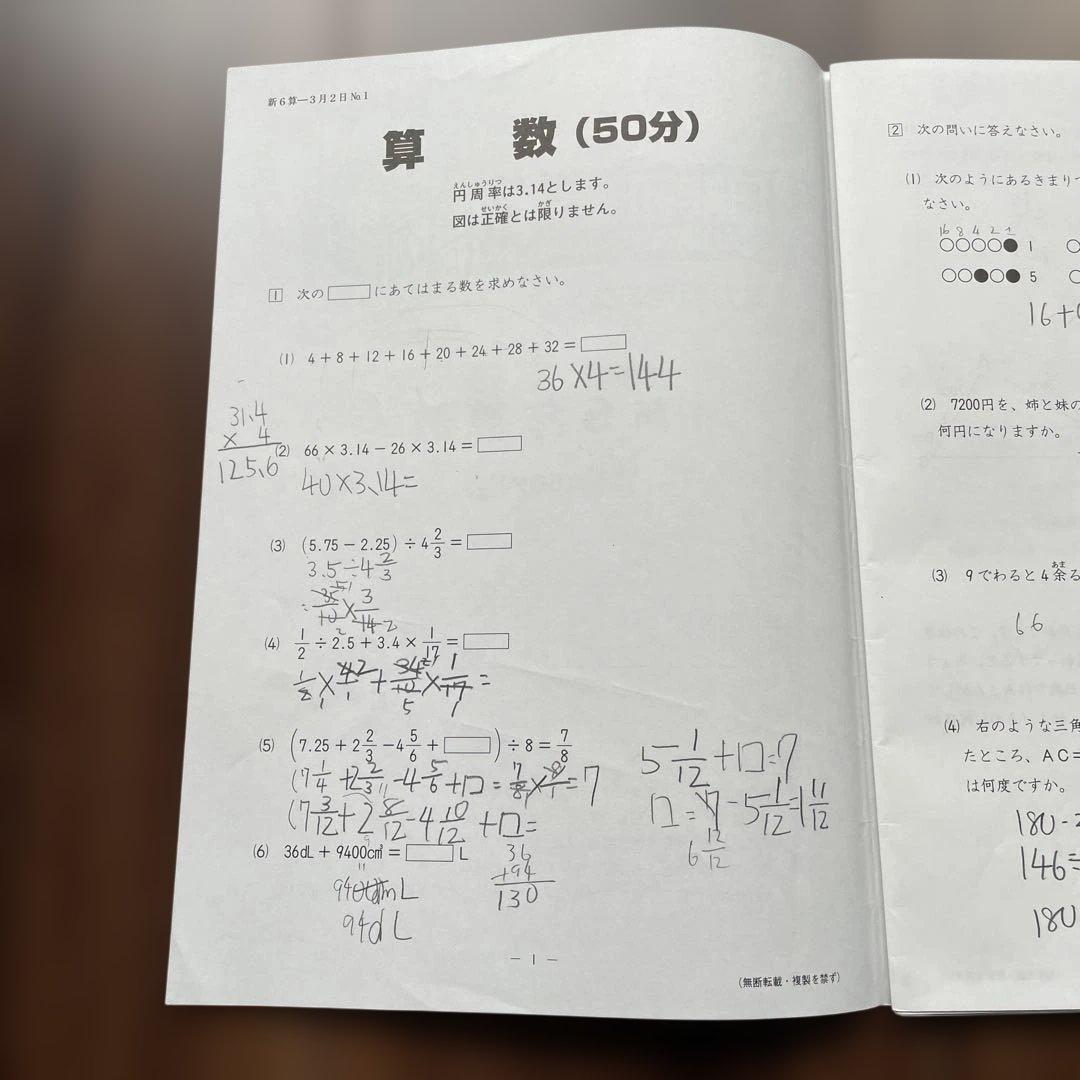 新6算—3月2日 №1
算 数 (50分)
えんしゅうりつ
円周率は3.14とします。
せいかく かぎ
図は正確とは限りません。
1 次の□にあてはまる数を求めなさい。
(1) 4+8+12+16+20+24+28+32=□
36×4=144
31.4
× 4
125.6
(2) 66×3.14−26×3.14=□
40×3.14=
(3) (5.75−2.25)÷4 2/3=□
3.5÷4 2/3
35/10×3/14
(4) 1/2÷2.5+3.4×1/17=□
+34/10×1/17=
(5) (7.25+2 2/3−4 5/6+□)÷8=7/8
(7 1/4+2 2/3−4 5/6+□=7/8×8/1=7
(7 3/12+2 8/12−4 10/12+□=
5 1/12+□=7
□=7−5 1/12=1 11/12
6 12/12
(6) 36dL+9400cm³=□L
94dL
36
+94
130
— 1 —
(無断転載・複製を禁ず)
2 次の問いに答えなさい。
(1) 次のようにあるきまりで
なさい。
16 8 4 2 1
○○○○● 1
○○●○● 5
16+
(2) 7200円を、姉と妹の
何円になりますか。
あま
(3) 9でわると4余る
66
(4) 右のような三角
たところ、AC=
は何度ですか。
180−
146=
180